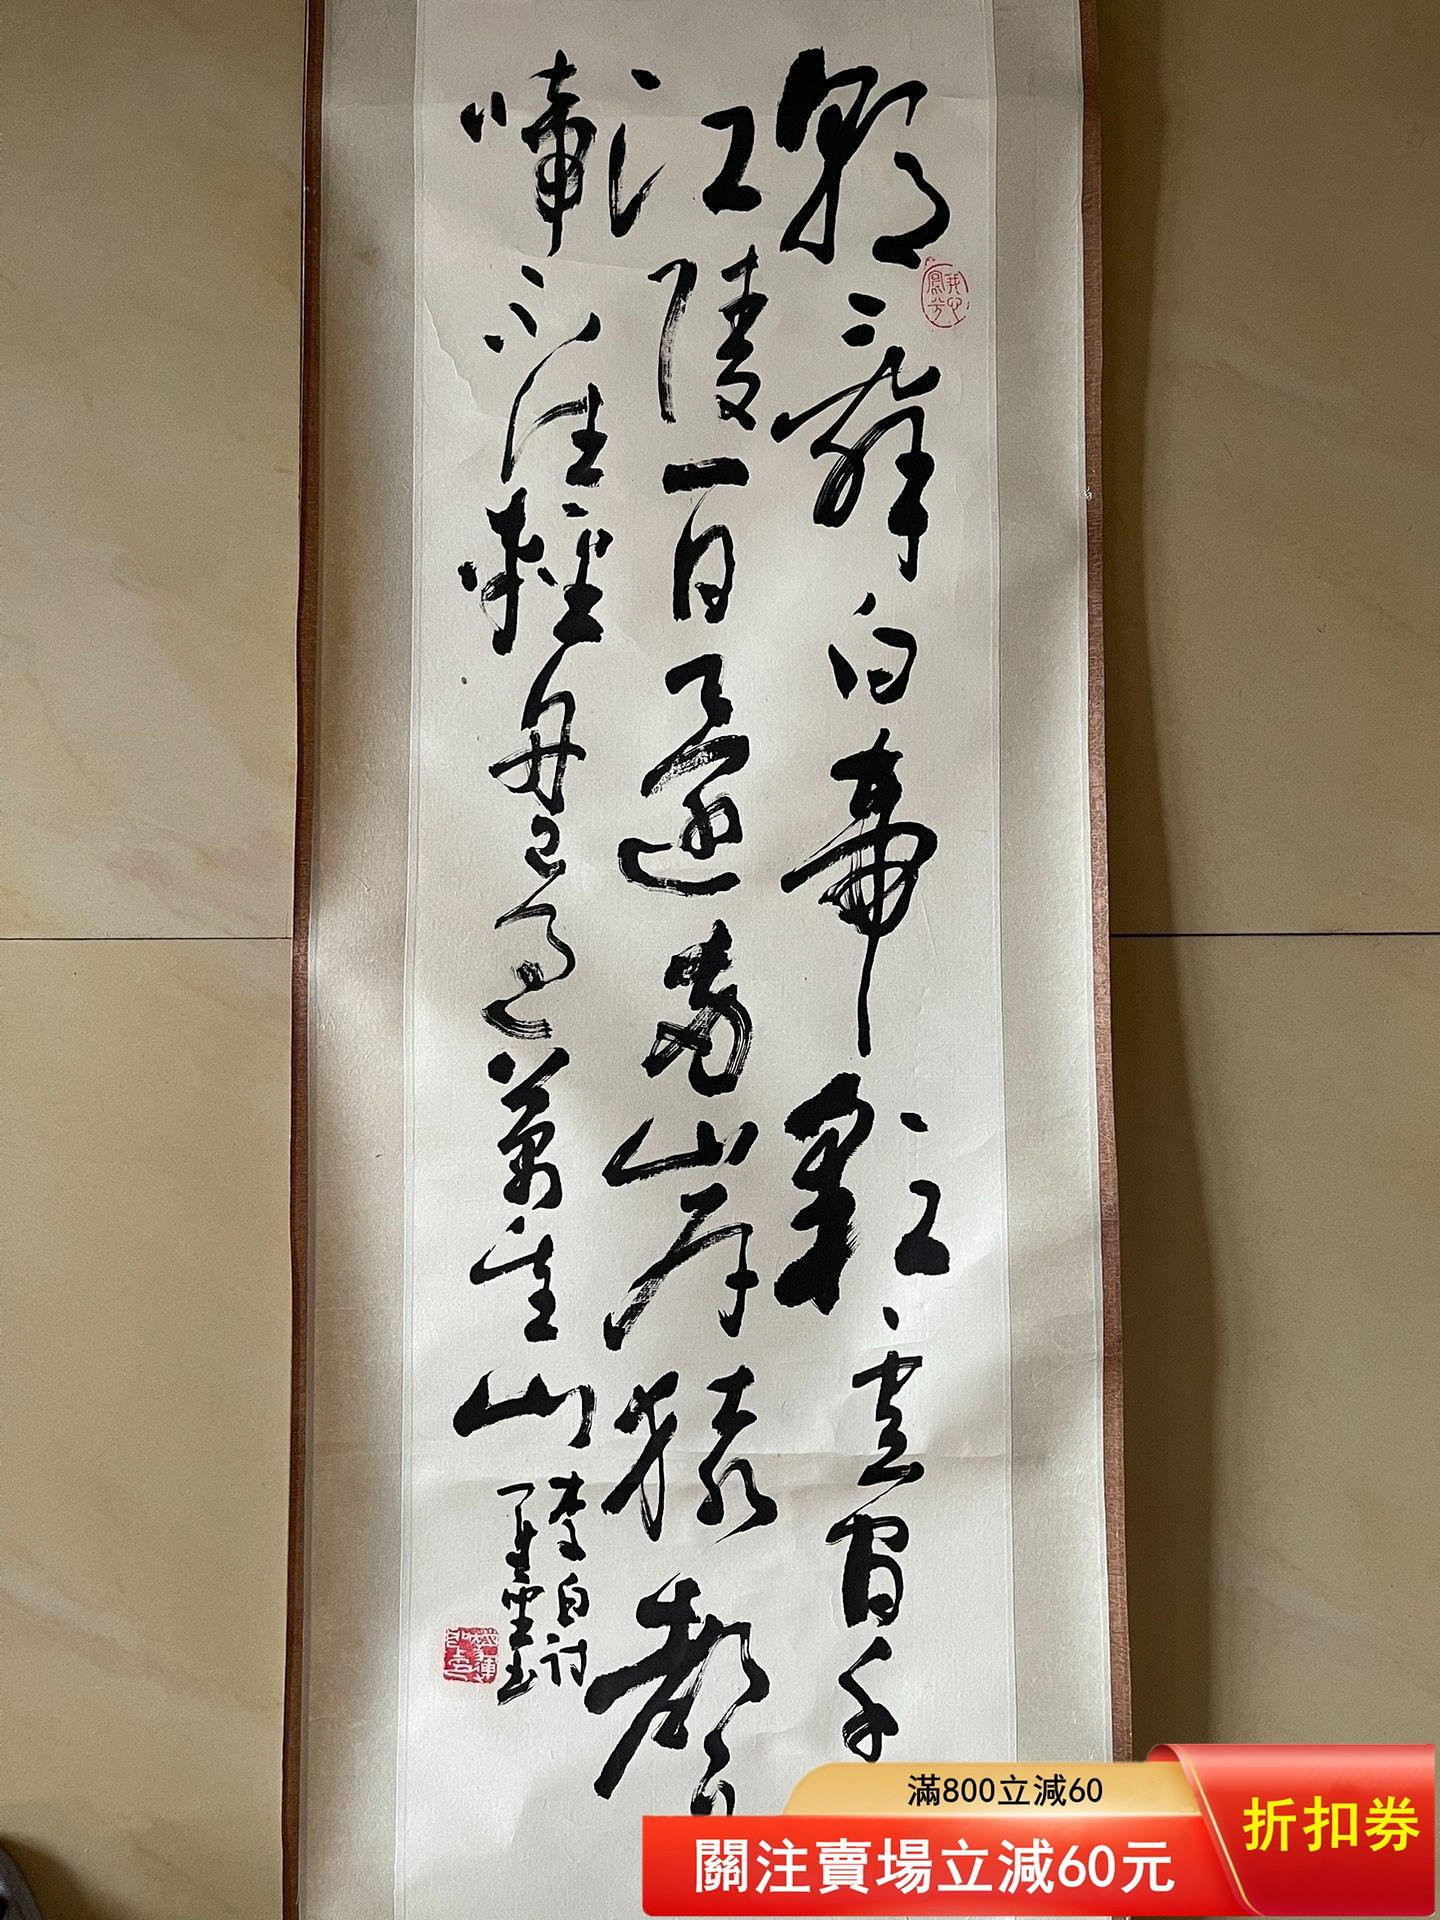 朝辭白帝彩雲間千
江陵一日還兩岸猿聲
啼不住輕舟已過萬重山
李白詩
滿800立減60
關注賣場立減60元
折扣券